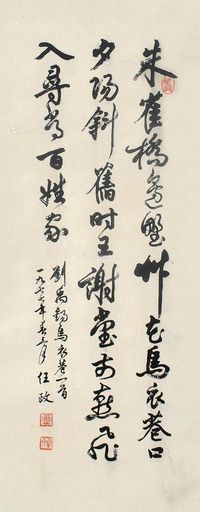 朱雀橋邊野艸花烏衣巷口
夕陽斜舊時王謝堂前燕飛
入尋常百姓家
劉禹錫烏衣巷一首
一九七七年春三月任政